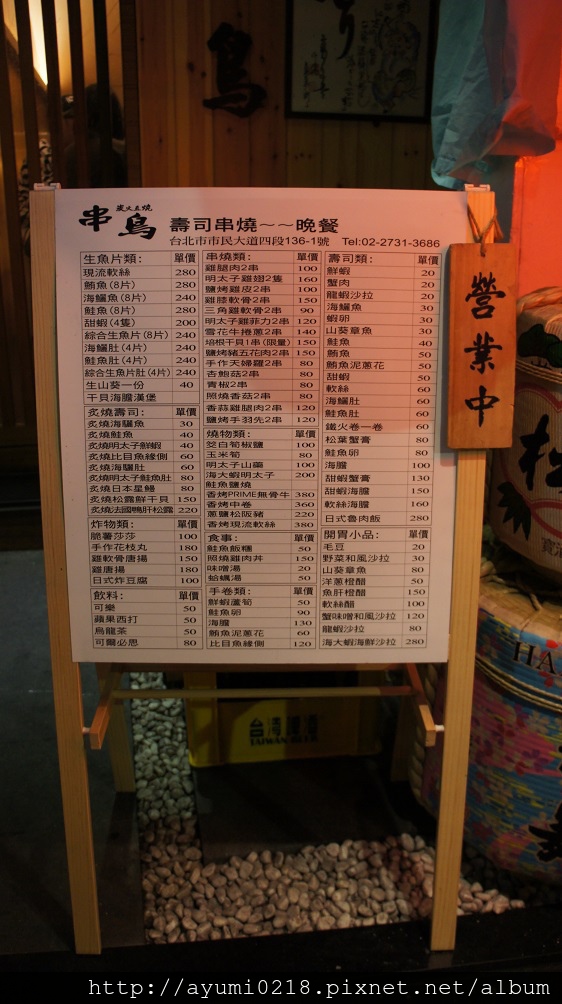 鳥
炭火直燒
串鳥
壽司串燒～～晚餐
台北市市民大道四段136-1號 Tel:02-2731-3686
生魚片類: 單價
現流軟絲 280
鮪魚(8片) 280
海鱺魚(8片) 240
鮭魚(8片) 280
甜蝦(4隻) 200
綜合生魚片(8片) 240
海鱺肚(4片) 240
鮭魚肚(4片) 240
綜合生魚片肚(4片) 240
生山葵一份 40
干貝海膽漢堡
炙燒壽司: 單價
炙燒海鱺魚 30
炙燒鮭魚 40
炙燒明太子鮮蝦 40
炙燒比目魚緣側 60
炙燒海鱺肚 60
炙燒明太子鮭魚肚 80
炙燒日本星鰻 80
炙燒松露鮮干貝 150
炙燒法國鴨肝松露 220
炸物類: 單價
脆薯莎莎 100
手作花枝丸 180
雞軟骨唐揚 150
雞唐揚 180
日式炸豆腐 100
飲料: 單價
可樂 50
蘋果西打 50
烏龍茶 50
可爾必思 80
串燒類: 單價
雞腿肉2串 100
明太子雞翅2隻 160
鹽烤雞皮2串 100
雞膝軟骨2串 150
三角雞軟骨2串 90
明太子雞菲力2串 120
雪花牛捲蔥2串 140
培根干貝1串(限量) 150
鹽烤豬五花肉2串 150
手作天婦羅2串 80
杏鮑菇2串 80
青椒2串 80
照燒香菇2串 80
香蒜雞腿肉2串 120
鹽烤手羽先2串 120
燒物類: 單價
茭白筍椒鹽 100
玉米筍 80
明太子山藥 100
海大蝦明太子 200
鮭魚鹽燒
香烤PRIME無骨牛 380
香烤中卷 360
蔥鹽松阪豬 220
香烤現流軟絲 380
食事: 單價
鮭魚飯糰 50
照燒雞肉丼 150
味噌湯 20
蛤蠣湯 50
手卷類: 單價
鮮蝦蘆筍 50
鮭魚卵 90
海膽 130
鮪魚泥蔥花 60
比目魚緣側 120
壽司類: 單價
鮮蝦 20
蟹肉 20
龍蝦沙拉 20
海鱺魚 30
蝦卵 30
山葵章魚 30
鮭魚 40
鮪魚 50
鮪魚泥蔥花 50
甜蝦 50
軟絲 60
海鱺肚 60
鮭魚肚 60
鐵火卷一卷 60
松葉蟹膏 80
鮭魚卵 80
海膽 100
甜蝦蟹膏 130
甜蝦海膽 150
軟絲海膽 160
日式魯肉飯 280
開胃小品: 單價
毛豆 20
野菜和風沙拉 30
山葵章魚 80
洋蔥橙醋 50
魚肝橙醋 150
軟絲醋 100
蟹味噌和風沙拉 120
龍蝦沙拉 80
海大蝦海鮮沙拉 280
營業中
松
HA
台灣啤酒
TAIWAN
http://ayumi0218.pixnet.net/album